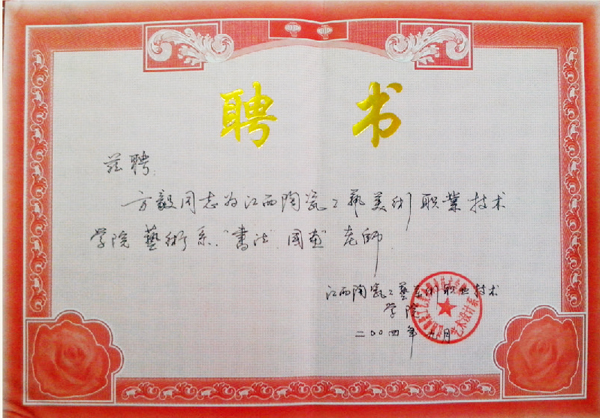 聘书
兹聘
方毅同志为江西陶瓷工藝美術职業技术
学院藝術系"書法"、国画 老師
江西陶瓷工藝美術职业技术
学院
二〇〇四年 月